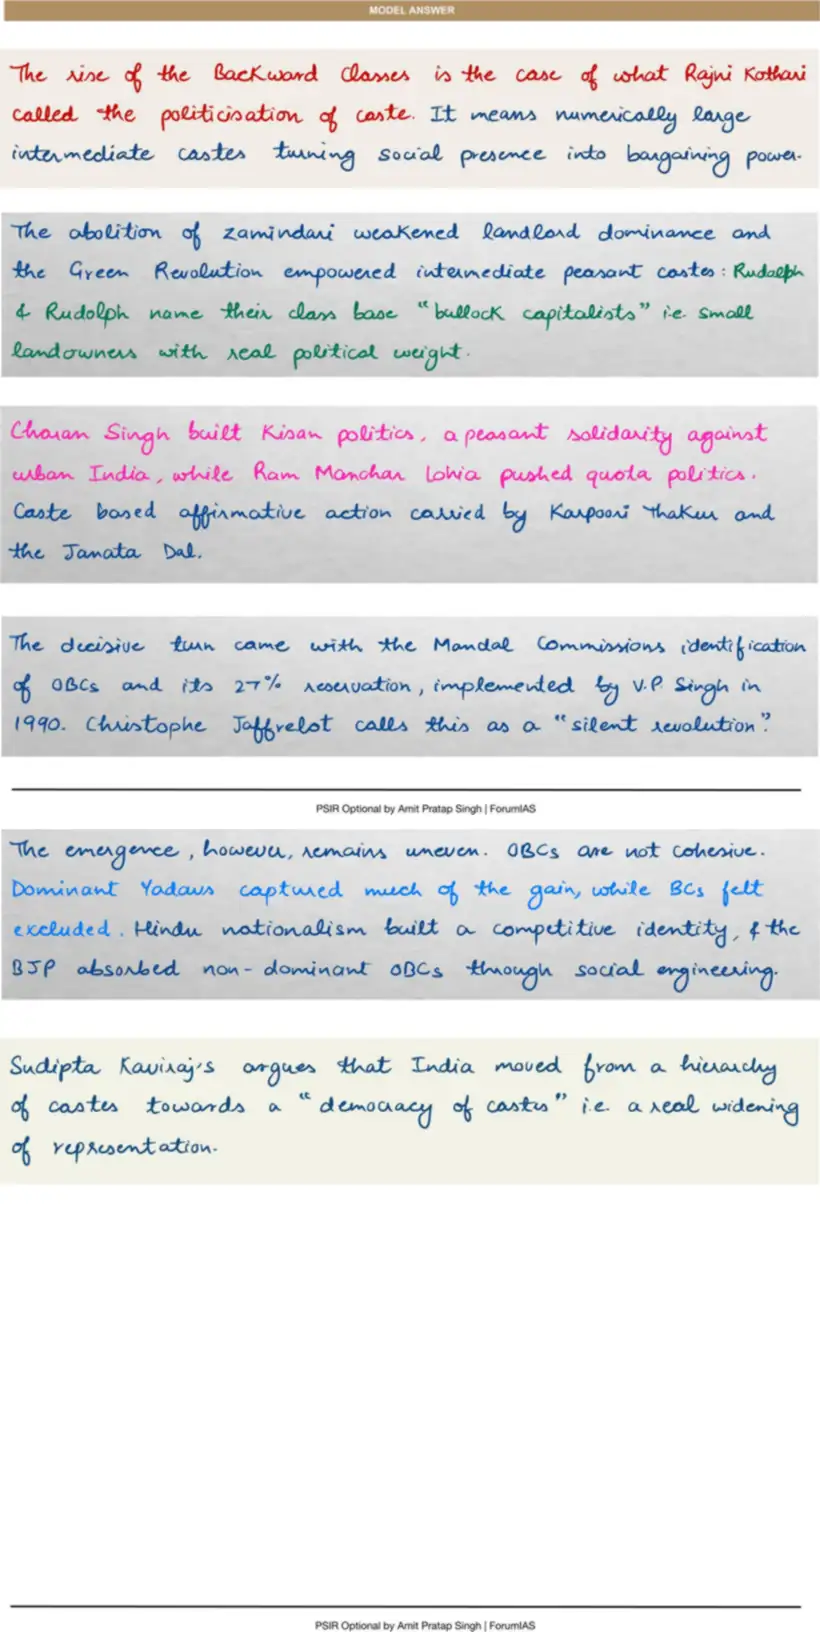 MODEL ANSWER
The rise of the Backward Classes is the case of what Rajni Kothari
called the politicisation of caste. It means numerically large
intermediate castes turning social presence into bargaining power.
The abolition of zamindari weakened landlord dominance and
the Green Revolution empowered intermediate peasant castes: Rudolph
& Rudolph name their class base "bullock capitalists" i.e. small
landowners with real political weight.
Charan Singh built Kisan politics, a peasant solidarity against
urban India, while Ram Manohar Lohia pushed quota politics.
Caste based affirmative action carried by Karpoori Thakur and
the Janata Dal.
The decisive turn came with the Mandal Commissions identification
of OBCs and its 27% reservation, implemented by V.P. Singh in
1990. Christophe Jaffrelot calls this as a "silent revolution".
PSIR Optional by Amit Pratap Singh | ForumIAS
The emergence, however, remains uneven. OBCs are not cohesive.
Dominant Yadavs captured much of the gain, while BCs felt
excluded. Hindu nationalism built a competitive identity, & the
BJP absorbed non-dominant OBCs through social engineering.
Sudipta Kaviraj's argues that India moved from a hierarchy
of castes towards a "democracy of castes" i.e. a real widening
of representation.
PSIR Optional by Amit Pratap Singh | ForumIAS